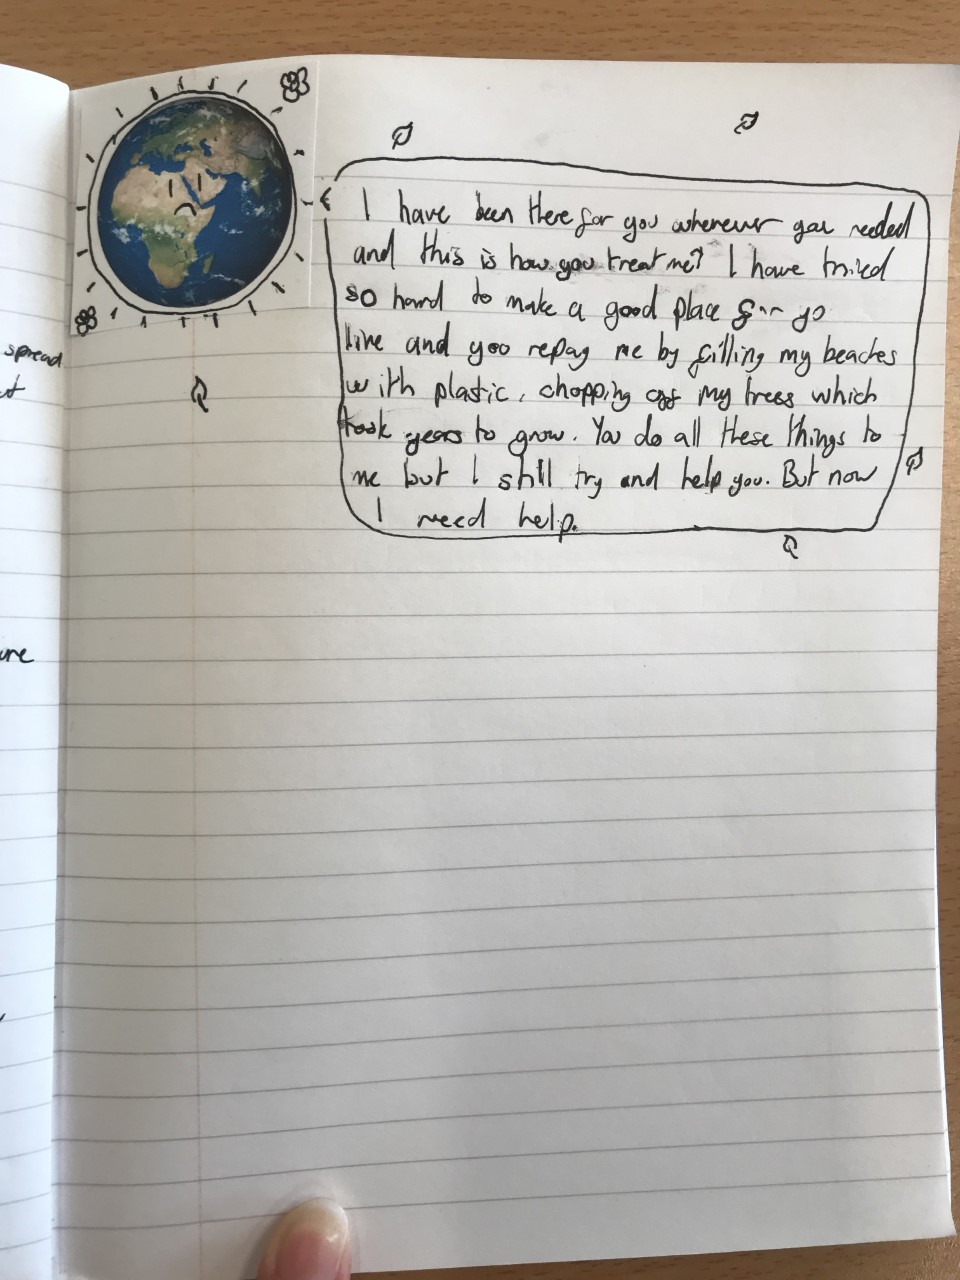 I have been there for you whenever you needed
and this is how you treat me? I have tried
so hard to make a good place for yo
live and you repay me by filling my beaches
with plastic, chopping off my trees which
took years to grow. You do all these things to
me but I still try and help you. But now
I need help.
spread